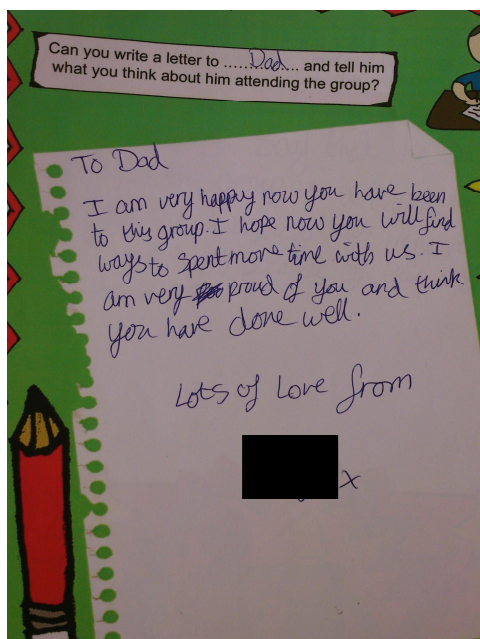 Can you write a letter to ......Dad... and tell him
what you think about him attending the group?
To Dad
I am very happy now you have been
to this group. I hope now you will find
ways to spent more time with us. I
am very proud of you and think
you have done well.
Lots of Love from
x